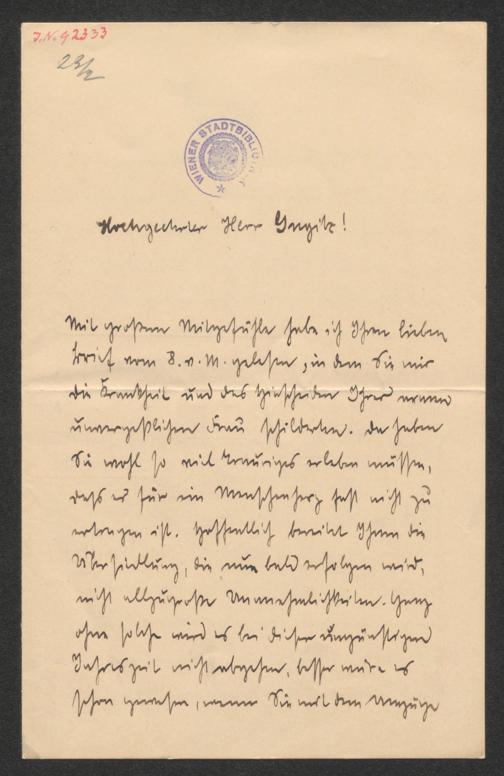 J.N. 92333
23/2
WIENER STADTBIBLIO
Hochgeehrter Herr Gugitz!
Mit großem Mitgefühle habe ich Ihren lieben
Brief vom 8. v. M. gelesen, in dem Sie mir
die Krankheit und das Hinscheiden Ihrer armen
unvergeßlichen Frau schilderten. Da haben
Sie wohl so viel Trauriges erleben müssen,
daß es für ein Menschenherz fast nicht zu
ertragen ist. Hoffentlich bereitet Ihnen die
Übersiedlung, die nun bald erfolgen wird,
nicht allzugroße Unannehmlichkeiten. Ganz
ohne solche wird es bei dieser ungünstigen
Jahreszeit nicht abgehen, besser wäre es
schon gewesen, wenn Sie mit dem Umzuge